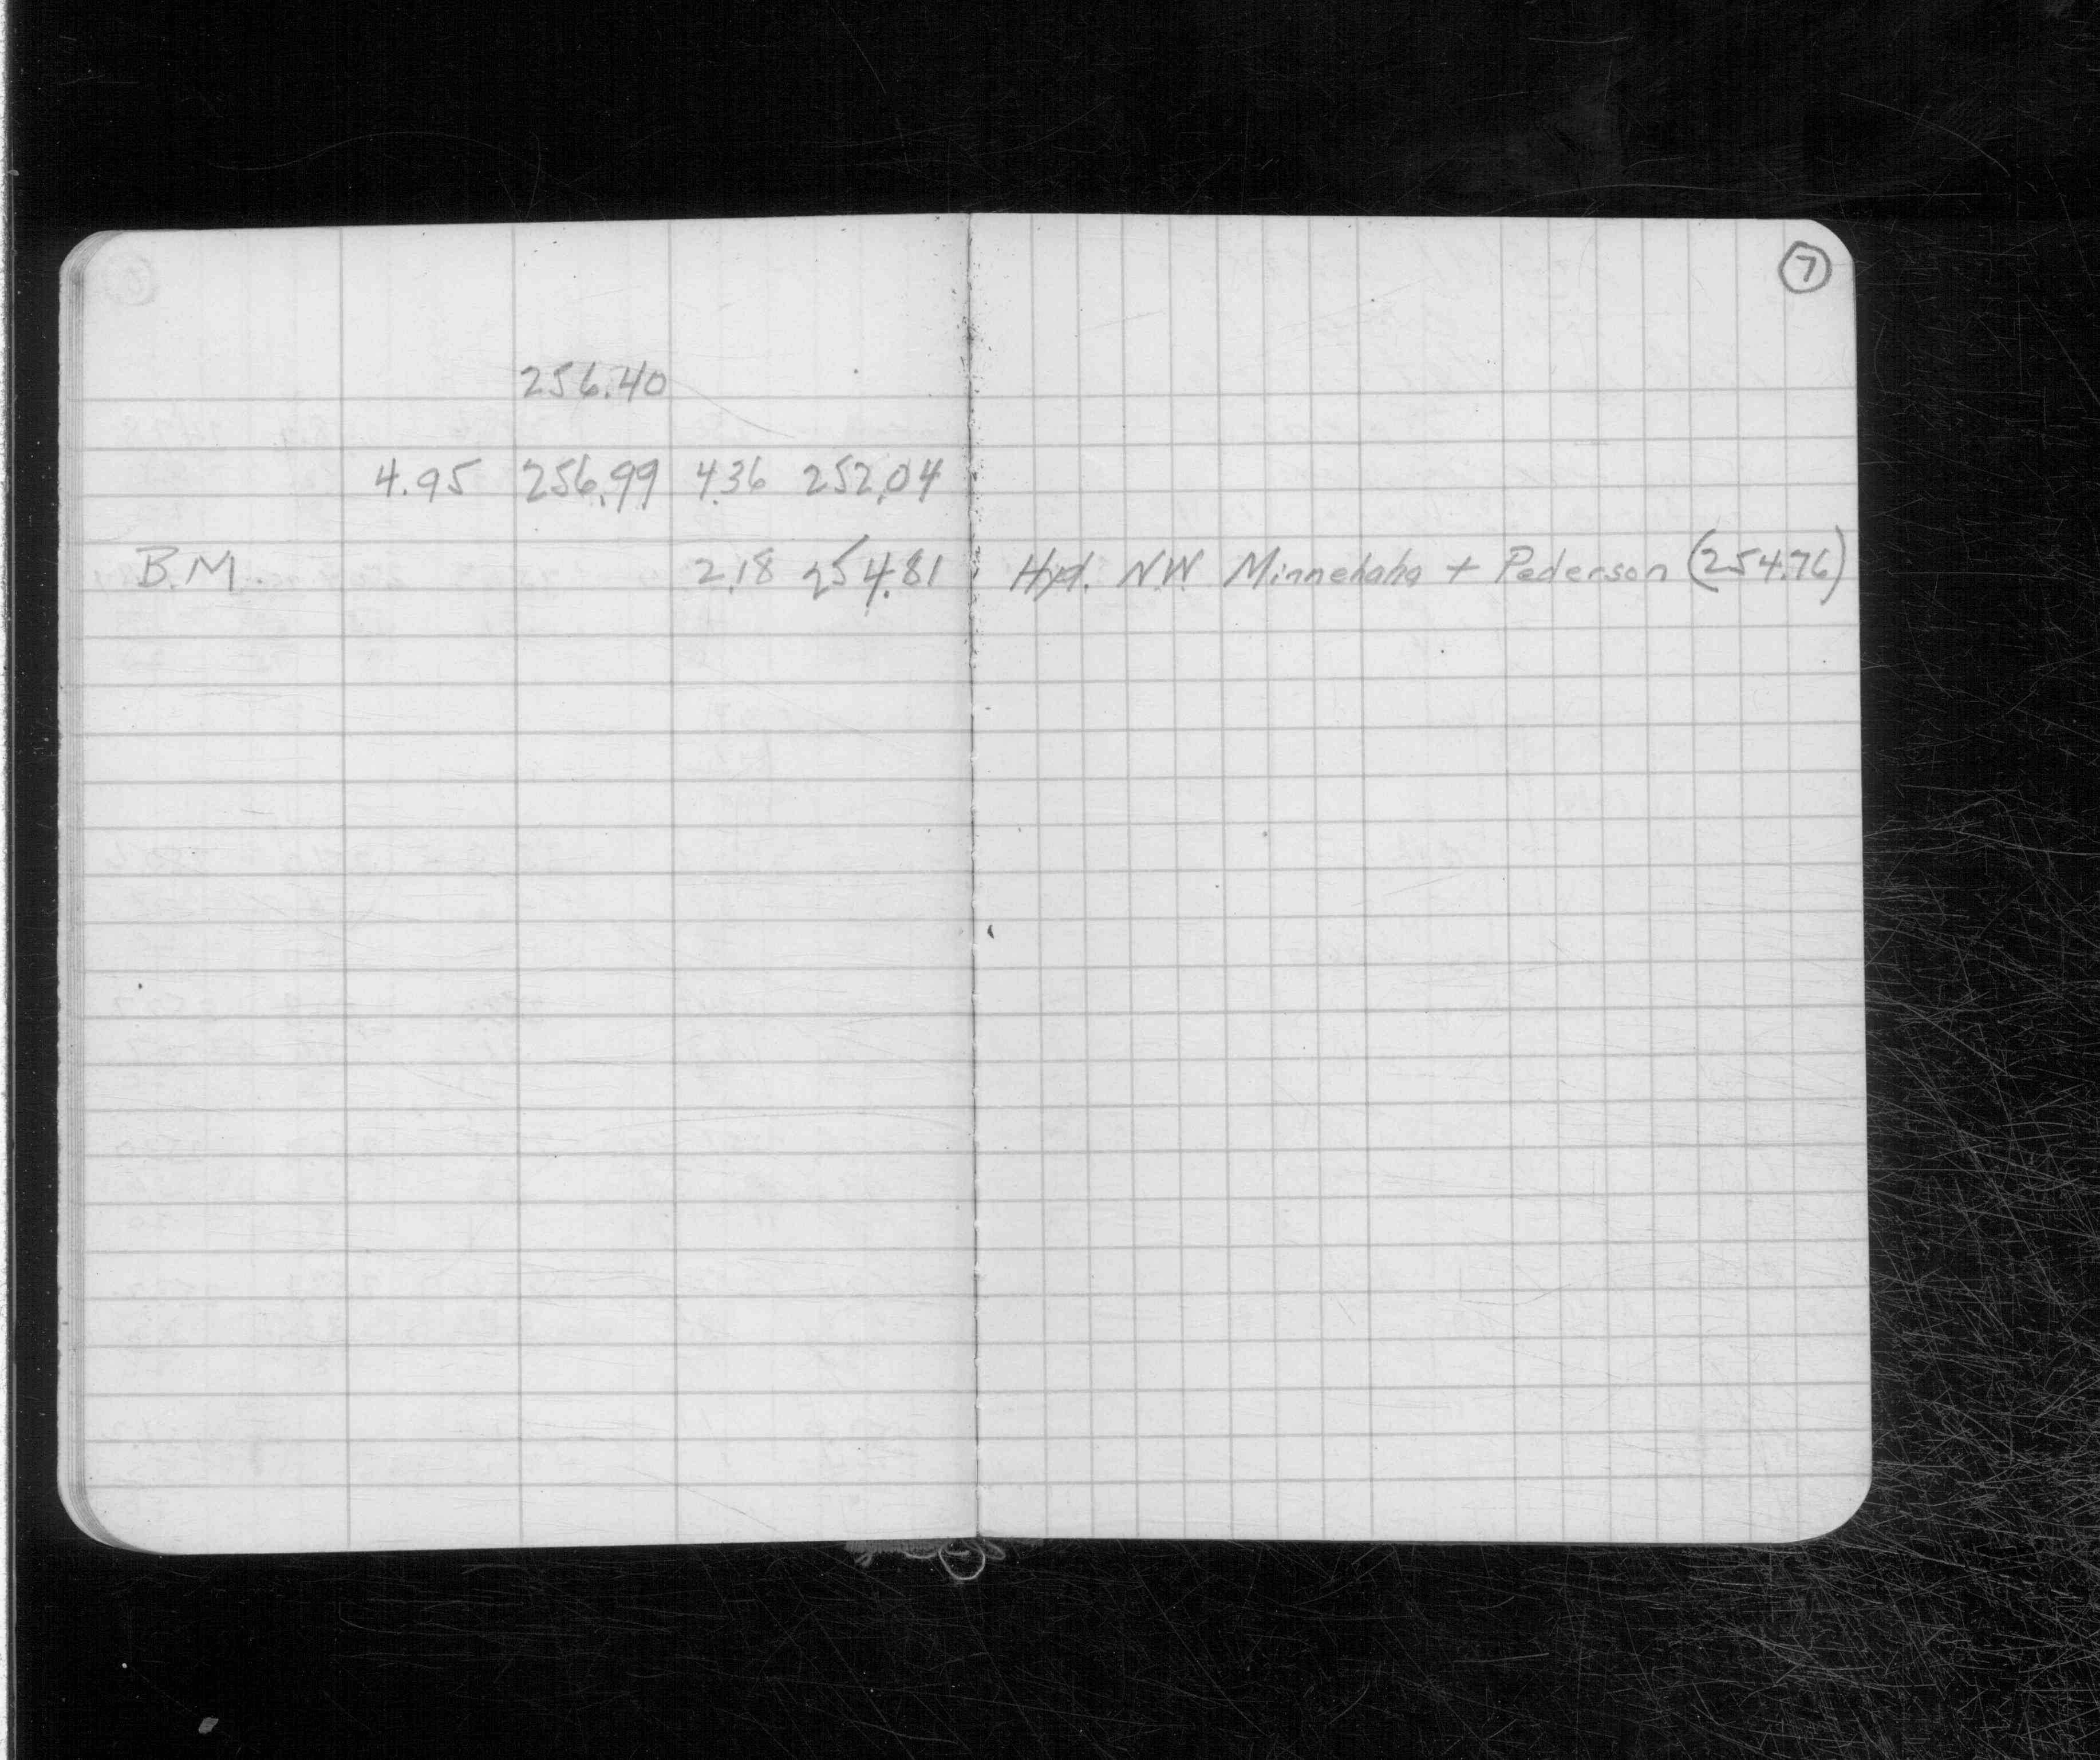 7
256.40
4.95 256.99 4.36 252.04
B.M. 2.18 254.81 Hyd. N.W. Minnehaha + Pederson (254.76)